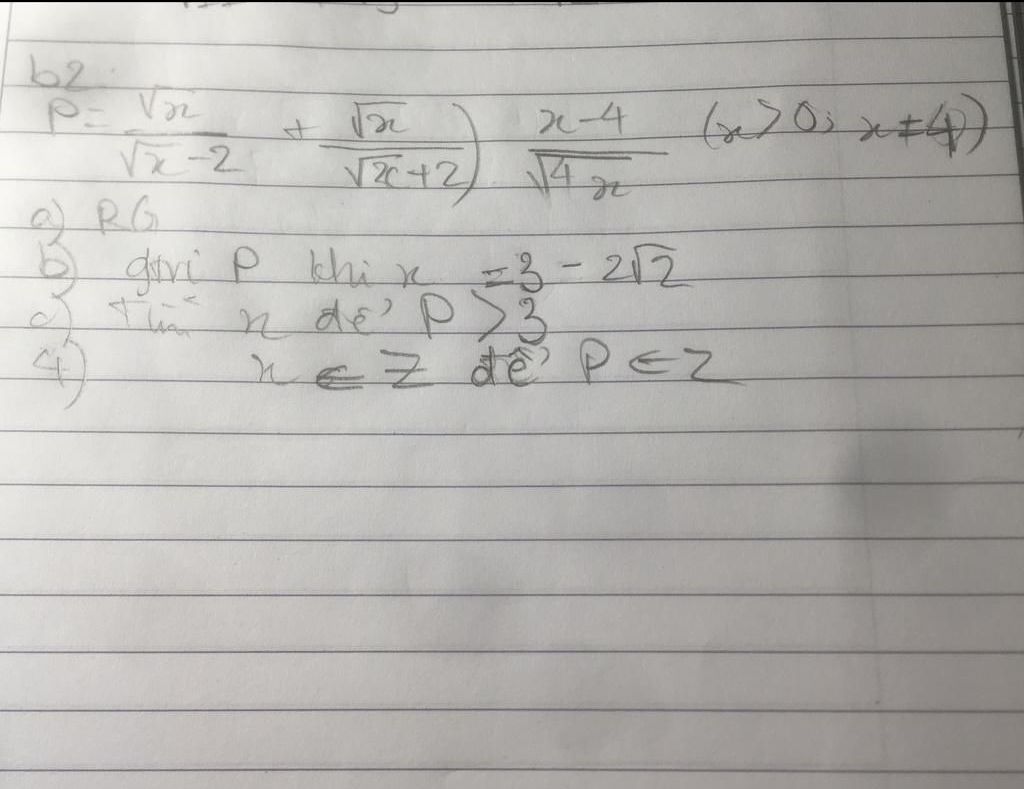 b2
P = √x / (√x - 2) + √x / (√x + 2)) . (x - 4) / √4x (x > 0; x ≠ 4)
a) RG
b) gtri P khi x = 3 - 2√2
c) Tìm x để P > 3
4) x ∈ Z để P ∈ Z